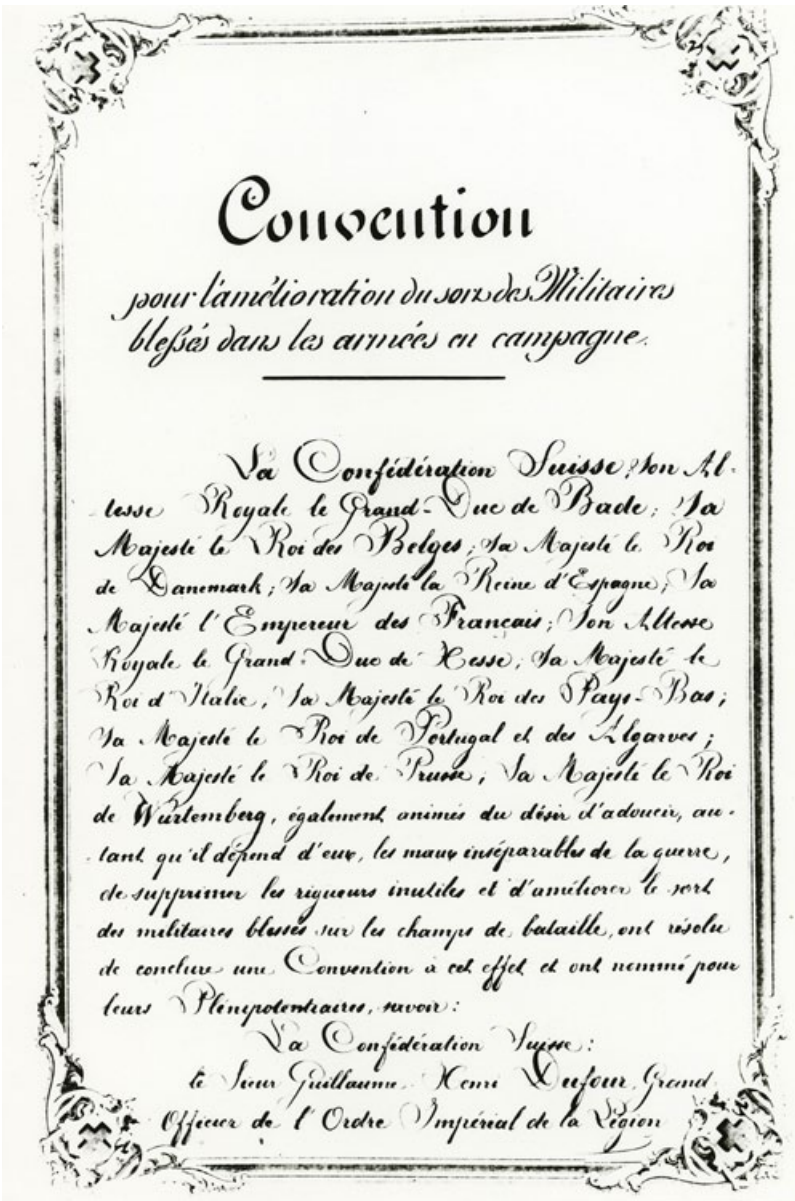 Convention
pour l'amélioration du sort des Militaires
blessés dans les armées en campagne.
La Confédération Suisse; Son Al-
tesse Royale le Grand-Duc de Bade; Sa
Majesté le Roi des Belges; Sa Majesté le Roi
de Danemark; Sa Majesté la Reine d'Espagne; Sa
Majesté l'Empereur des Francais; Son Altesse
Royale le Grand-Duc de Hesse; Sa Majesté le
Roi d'Italie; Sa Majesté le Roi des Pays-Bas;
Sa Majesté le Roi de Portugal et des Algarves;
Sa Majesté le Roi de Prusse; Sa Majesté le Roi
de Würtemberg, également animés du désir d'adoucir, au-
tant qu'il dépend d'eux, les maux inséparables de la guerre,
de supprimer les rigueurs inutiles et d'améliorer le sort
des militaires blessés sur les champs de bataille, ont résolu
de conclure une Convention à cet effet et ont nommé pour
leurs Plénipotentiaires, savoir:
La Confédération Suisse:
le Sieur Guillaume-Henri Dufour, Grand
Officier de l'Ordre Impérial de la Légion